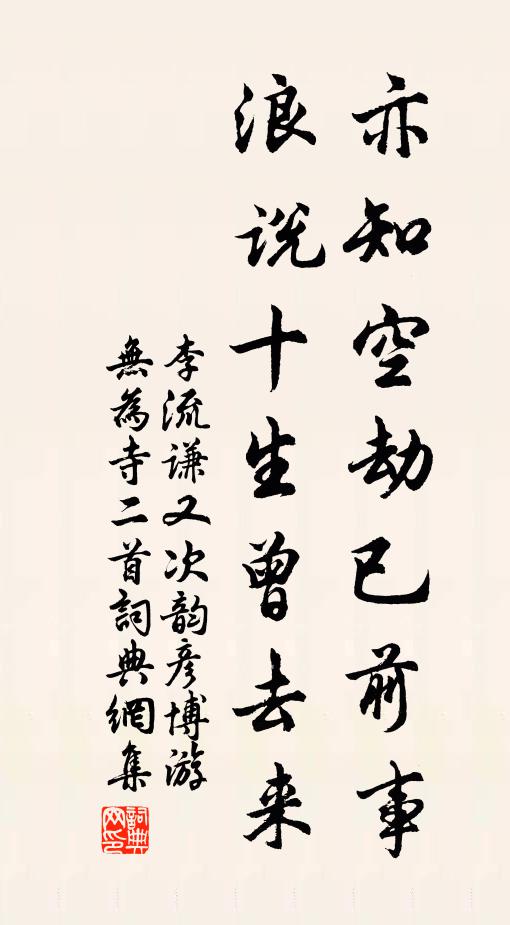 亦知空劫已前事
浪说十生曾去来
李流谦又次韵彦博游
無為寺二首詞典網集
詞典网印